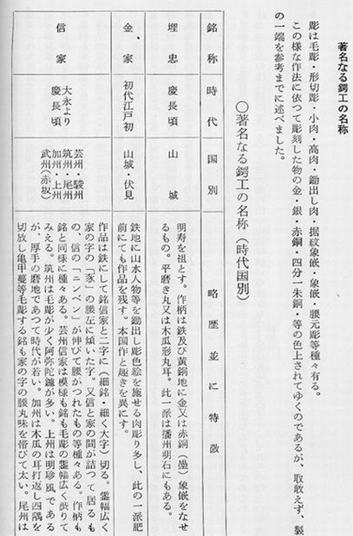 著名なる鍔工の名称
彫は毛彫・形切彫・小肉・高肉・鋤出し肉・据紋象嵌・象嵌・腰元彫等種々有る。
この様な作法に依つて彫刻した物の金・銀・赤銅・四分一朱銅・等の色上されてゆくのであるが、取敢えず、製
の一端を参考までに述べました。
〇著名なる鍔工の名称(時代国別)
銘称 時代 国別 略歴並に特徴
埋忠 慶長頃 山城
明寿を祖とす。作柄は鉄及び黄銅地に金又は赤銅(墨)象嵌をなせ
るもの。平磨き丸又は木瓜形丸耳。此一派は播州明石にもある。
金家 初代江戸初 山城・伏見
鉄地に山水人物等を鋤出し彫色絵を施せる肉彫り多し、此の一派肥
前にても作品を残す。本国作と趣きを異にす。
信家 大永より
慶長頃
芸州・駿州
筑州・尾州
加州・上州
武州(赤坂)
作品は鉄にして銘信家と二字に(細銘・細く大字)切る。
家の字の「豕」の腰左に傾いた字。又信と家の間が詰つて居るも
の、信の「ニンベン」が伸びて腰がつれたもの等種々ある。作柄も
銘と同様に種々ある。芸州信家は模様も銘も毛彫の霊幅広く渋りて
みえる。筑州は毛彫が少く阿弥陀鑢が多い。上州は明珍風である
が、厚手の磨地であつて時代が若い。加州は木瓜の耳打返し四隅を
切放し亀甲蔓等毛彫する銘も家の字の腰丸味を帯びて太い。尾州は